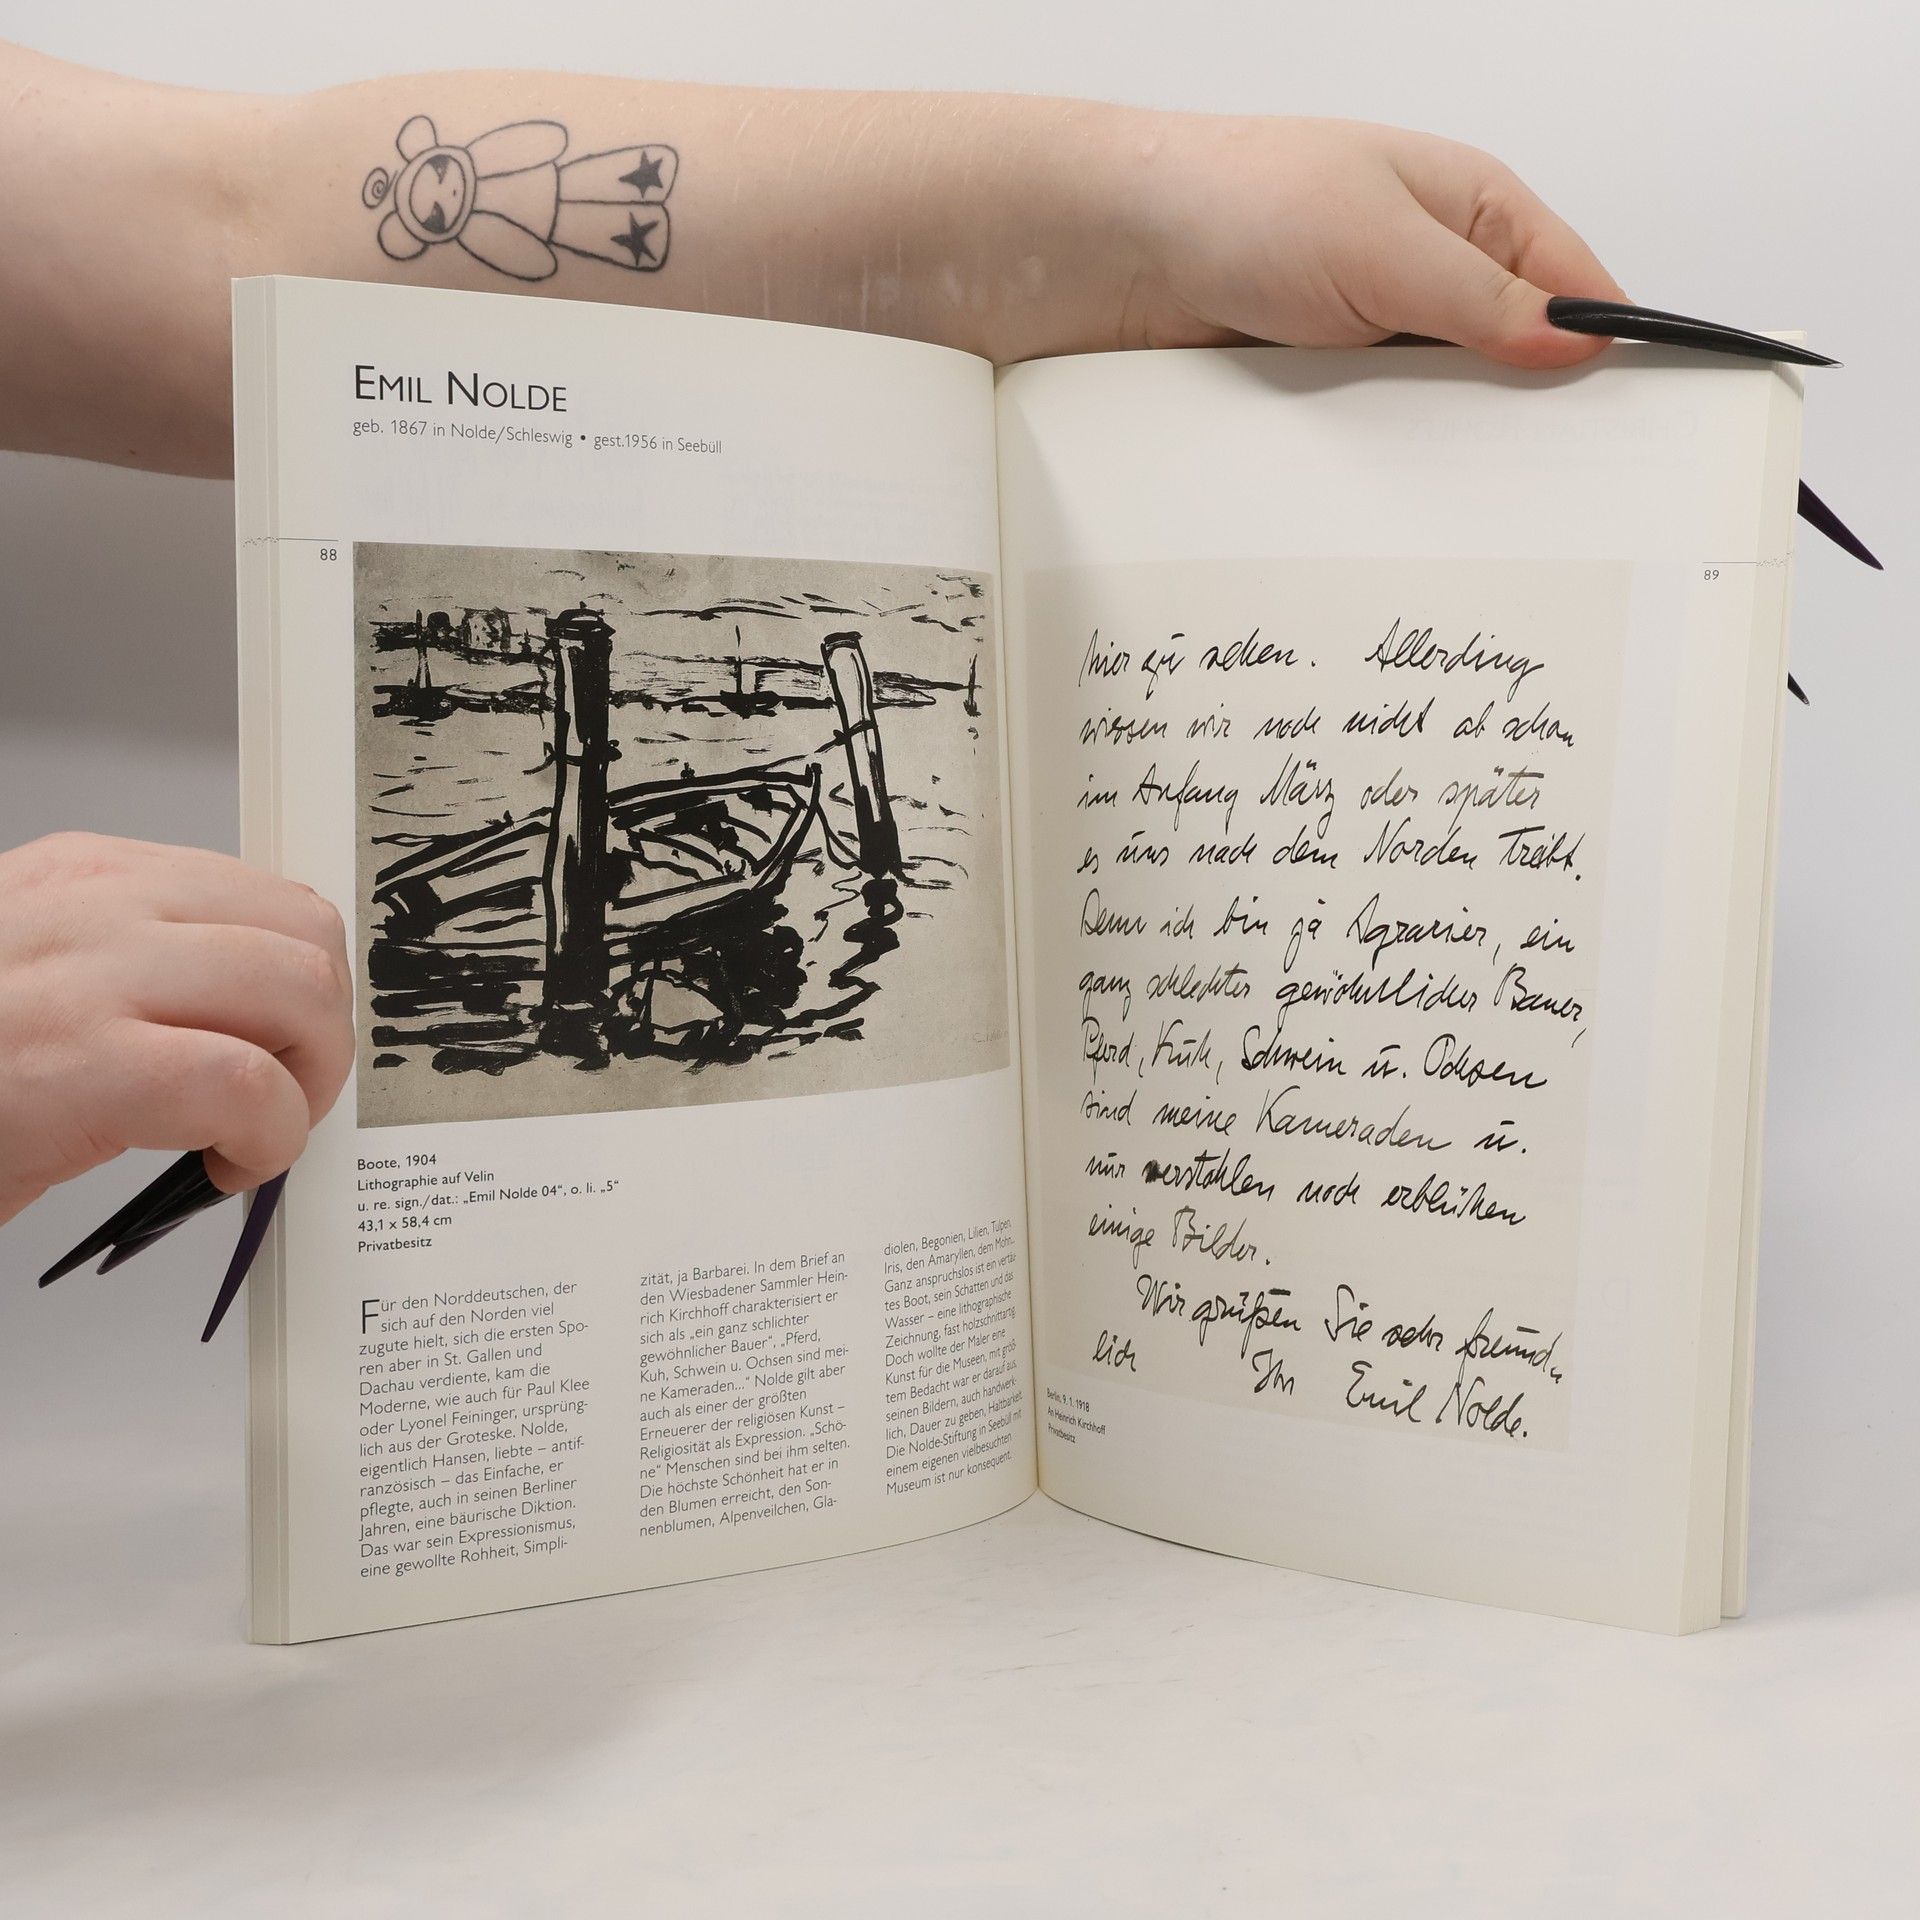 EMIL NOLDE
geb. 1867 in Nolde/Schleswig • gest.1956 in Seebüll
88
Boote, 1904
Lithographie auf Velin
u. re. sign./dat.: „Emil Nolde 04“, o. li. „5“
43,1 x 58,4 cm
Privatbesitz
Für den Norddeutschen, der
sich auf den Norden viel
zugute hielt, sich die ersten Spo-
ren aber in St. Gallen und
Dachau verdiente, kam die
Moderne, wie auch für Paul Klee
oder Lyonel Feininger, ursprüng-
lich aus der Groteske. Nolde,
eigentlich Hansen, liebte – antif-
ranzösisch – das Einfache, er
pflegte, auch in seinen Berliner
Jahren, eine bäurische Diktion.
Das war sein Expressionismus,
eine gewollte Rohheit, Simpli-
zität, ja Barbarei. In dem Brief an
den Wiesbadener Sammler Hein-
rich Kirchhoff charakterisiert er
sich als „ein ganz schlichter
gewöhnlicher Bauer“, „Pferd,
Kuh, Schwein u. Ochsen sind mei-
ne Kameraden...“ Nolde gilt aber
auch als einer der größten
Erneuerer der religiösen Kunst –
Religiosität als Expression. „Schö-
ne“ Menschen sind bei ihm selten.
Die höchste Schönheit hat er in
den Blumen erreicht, den Son-
nenblumen, Alpenveilchen, Gla-
diolen, Begonien, Lilien, Tulpen,
Iris, den Amaryllen, dem Mohn...
Ganz anspruchslos ist ein vertäu-
tes Boot, sein Schatten und das
Wasser – eine lithographische
Zeichnung, fast holzschnittartig.
Doch wollte der Maler eine
Kunst für die Museen, mit größ-
tem Bedacht war er darauf aus,
seinen Bildern, auch handwerk-
lich, Dauer zu geben, Haltbarkeit.
Die Nolde-Stiftung in Seebüll mit
einem eigenen vielbesuchten
Museum ist nur konsequent.
89
hier zu sehen. Allerding
wissen wir noch nicht ob schon
im Anfang März oder später
es uns nach dem Norden treibt.
Denn ich bin ja Agrarier, ein
ganz schlechter gewöhnlicher Bauer,
Pferd, Kuh, Schwein u. Ochsen
sind meine Kameraden u.
nur verstohlen noch erblühen
einige Bilder.
Wir grüßen Sie sehr freund-
lich Ihr Emil Nolde.
Berlin, 9. 1. 1918
An Heinrich Kirchhoff
Privatbesitz